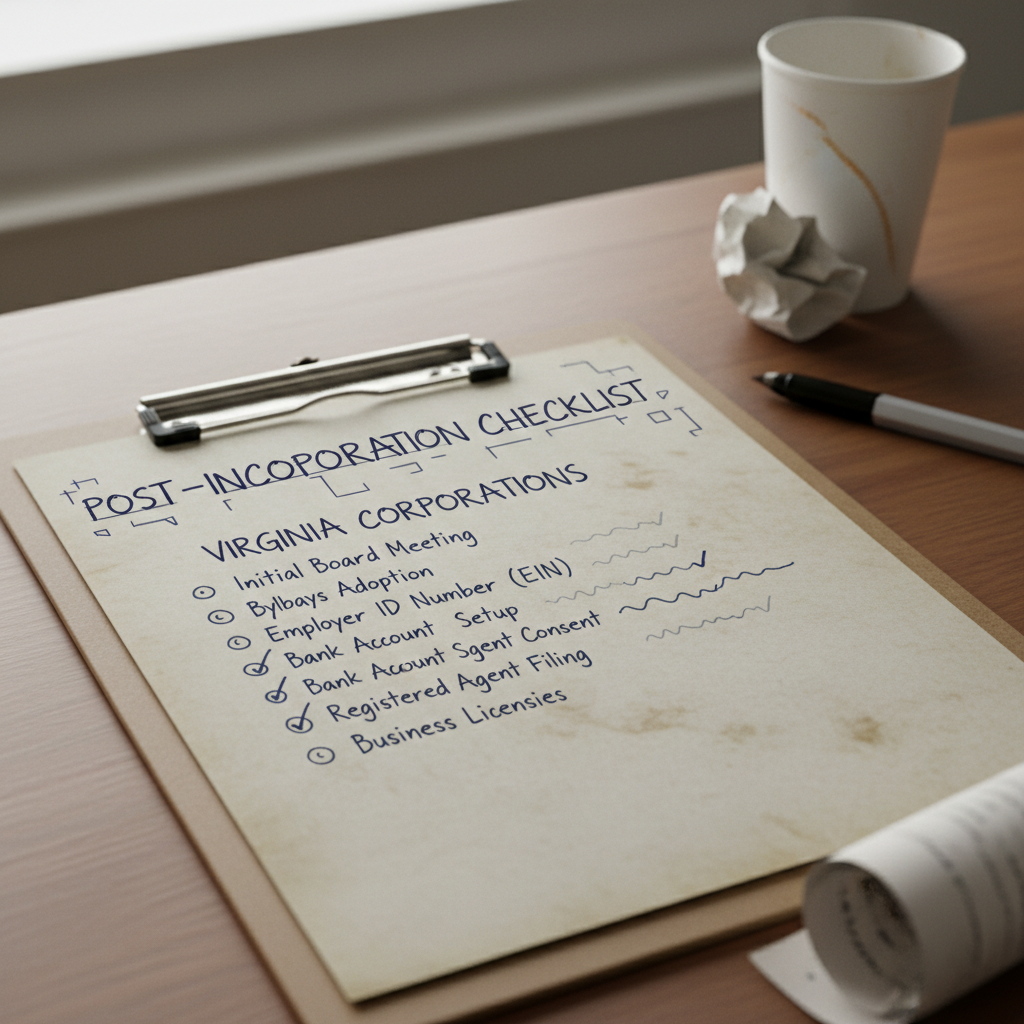 POST-INCOPORATION CHECKLIST
VIRGINIA CORPORATIONS
Initial Board Meeting
Bylbays Adoption
Employer ID Number (EIN)
Bank Account Setup
Bank Acount Sgent Consent
Registered Agent Filing
Business Licensies